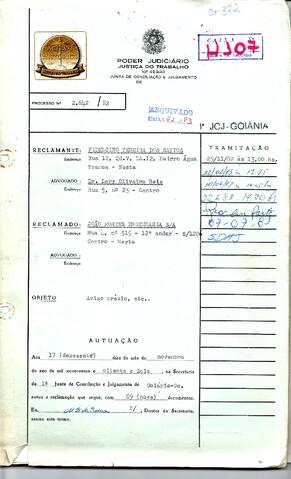 cx 372
PODER JUDICIÁRIO
JUSTIÇA DO TRABALHO
10ª REGIÃO
JUNTA DE CONCILIAÇÃO & JULGAMENTO
DE
PROCESSO Nº 2.642 / 82
ARQUIVADO
1ª JCJ-GOIÂNIA
RECLAMANTE: FIDELCINO PEREIRA DOS SANTOS
Endereço Rua 12, Qd.V, Lt.12, Bairro Água
Branca - Nesta
TRAMITAÇÃO
25/11/82 às 13,00 hs.
ADVOGADO: Dr. Lery Oliveira Reis
Endereço Rua 5, nº 23 - Centro
RECLAMADO: JOÃO FORTES ENGENHARIA S/A
Endereço Rua 4, nº 515 - 12º andar - s/120
Centro - Nesta
07-07-83
ADVOGADO:
Endereço
OBJETO Aviso prévio, etc..
AUTUAÇÃO
Aos 17 (dezessete) dias do mês de novembro
do ano de mil novecentos e oitenta e dois, na Secretaria
da 1ª Junta de Conciliação e Julgamento de Goiânia-Go.
autuo a reclamação que segue, com 09 (nove) documentos.
Eu, Diretor de Secretaria,
assino este termo.